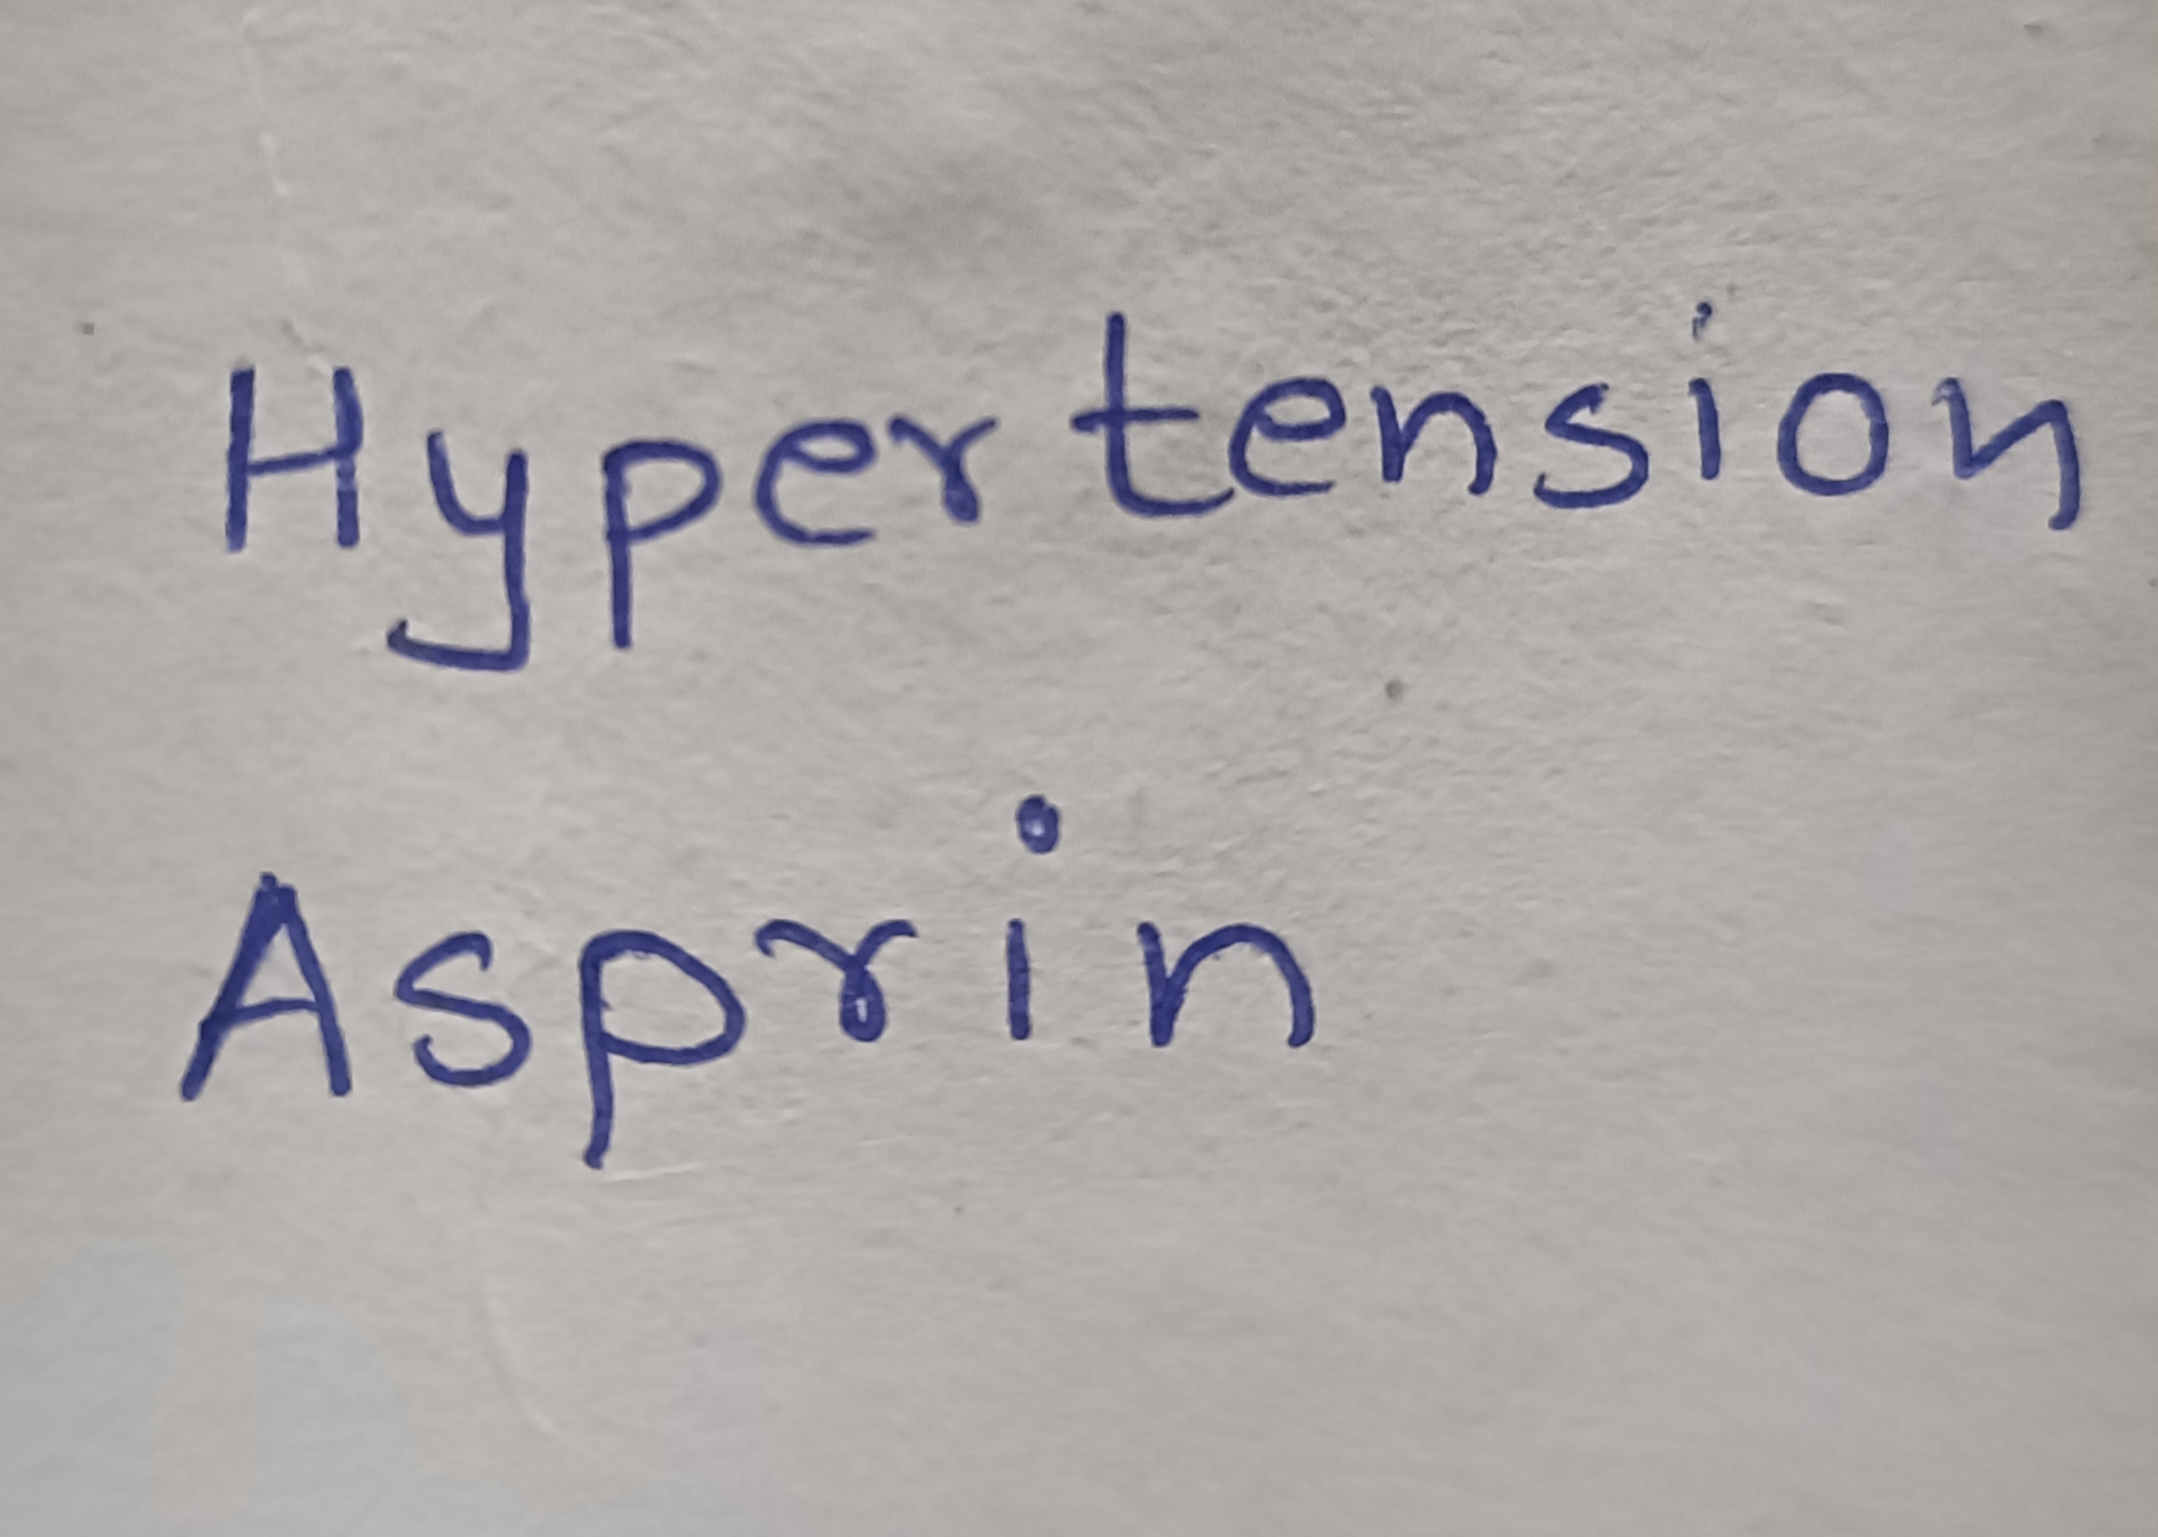 Hypertension
Asprin